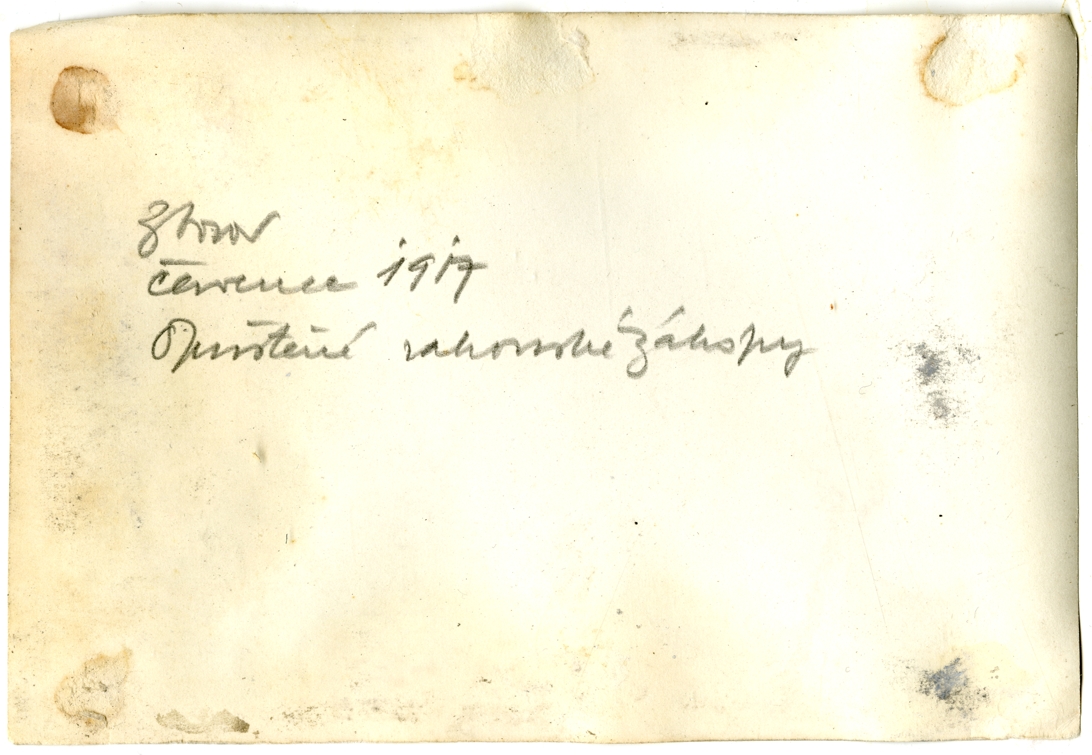 Zborov
červenec 1917
Opuštěné rakouské zákopy